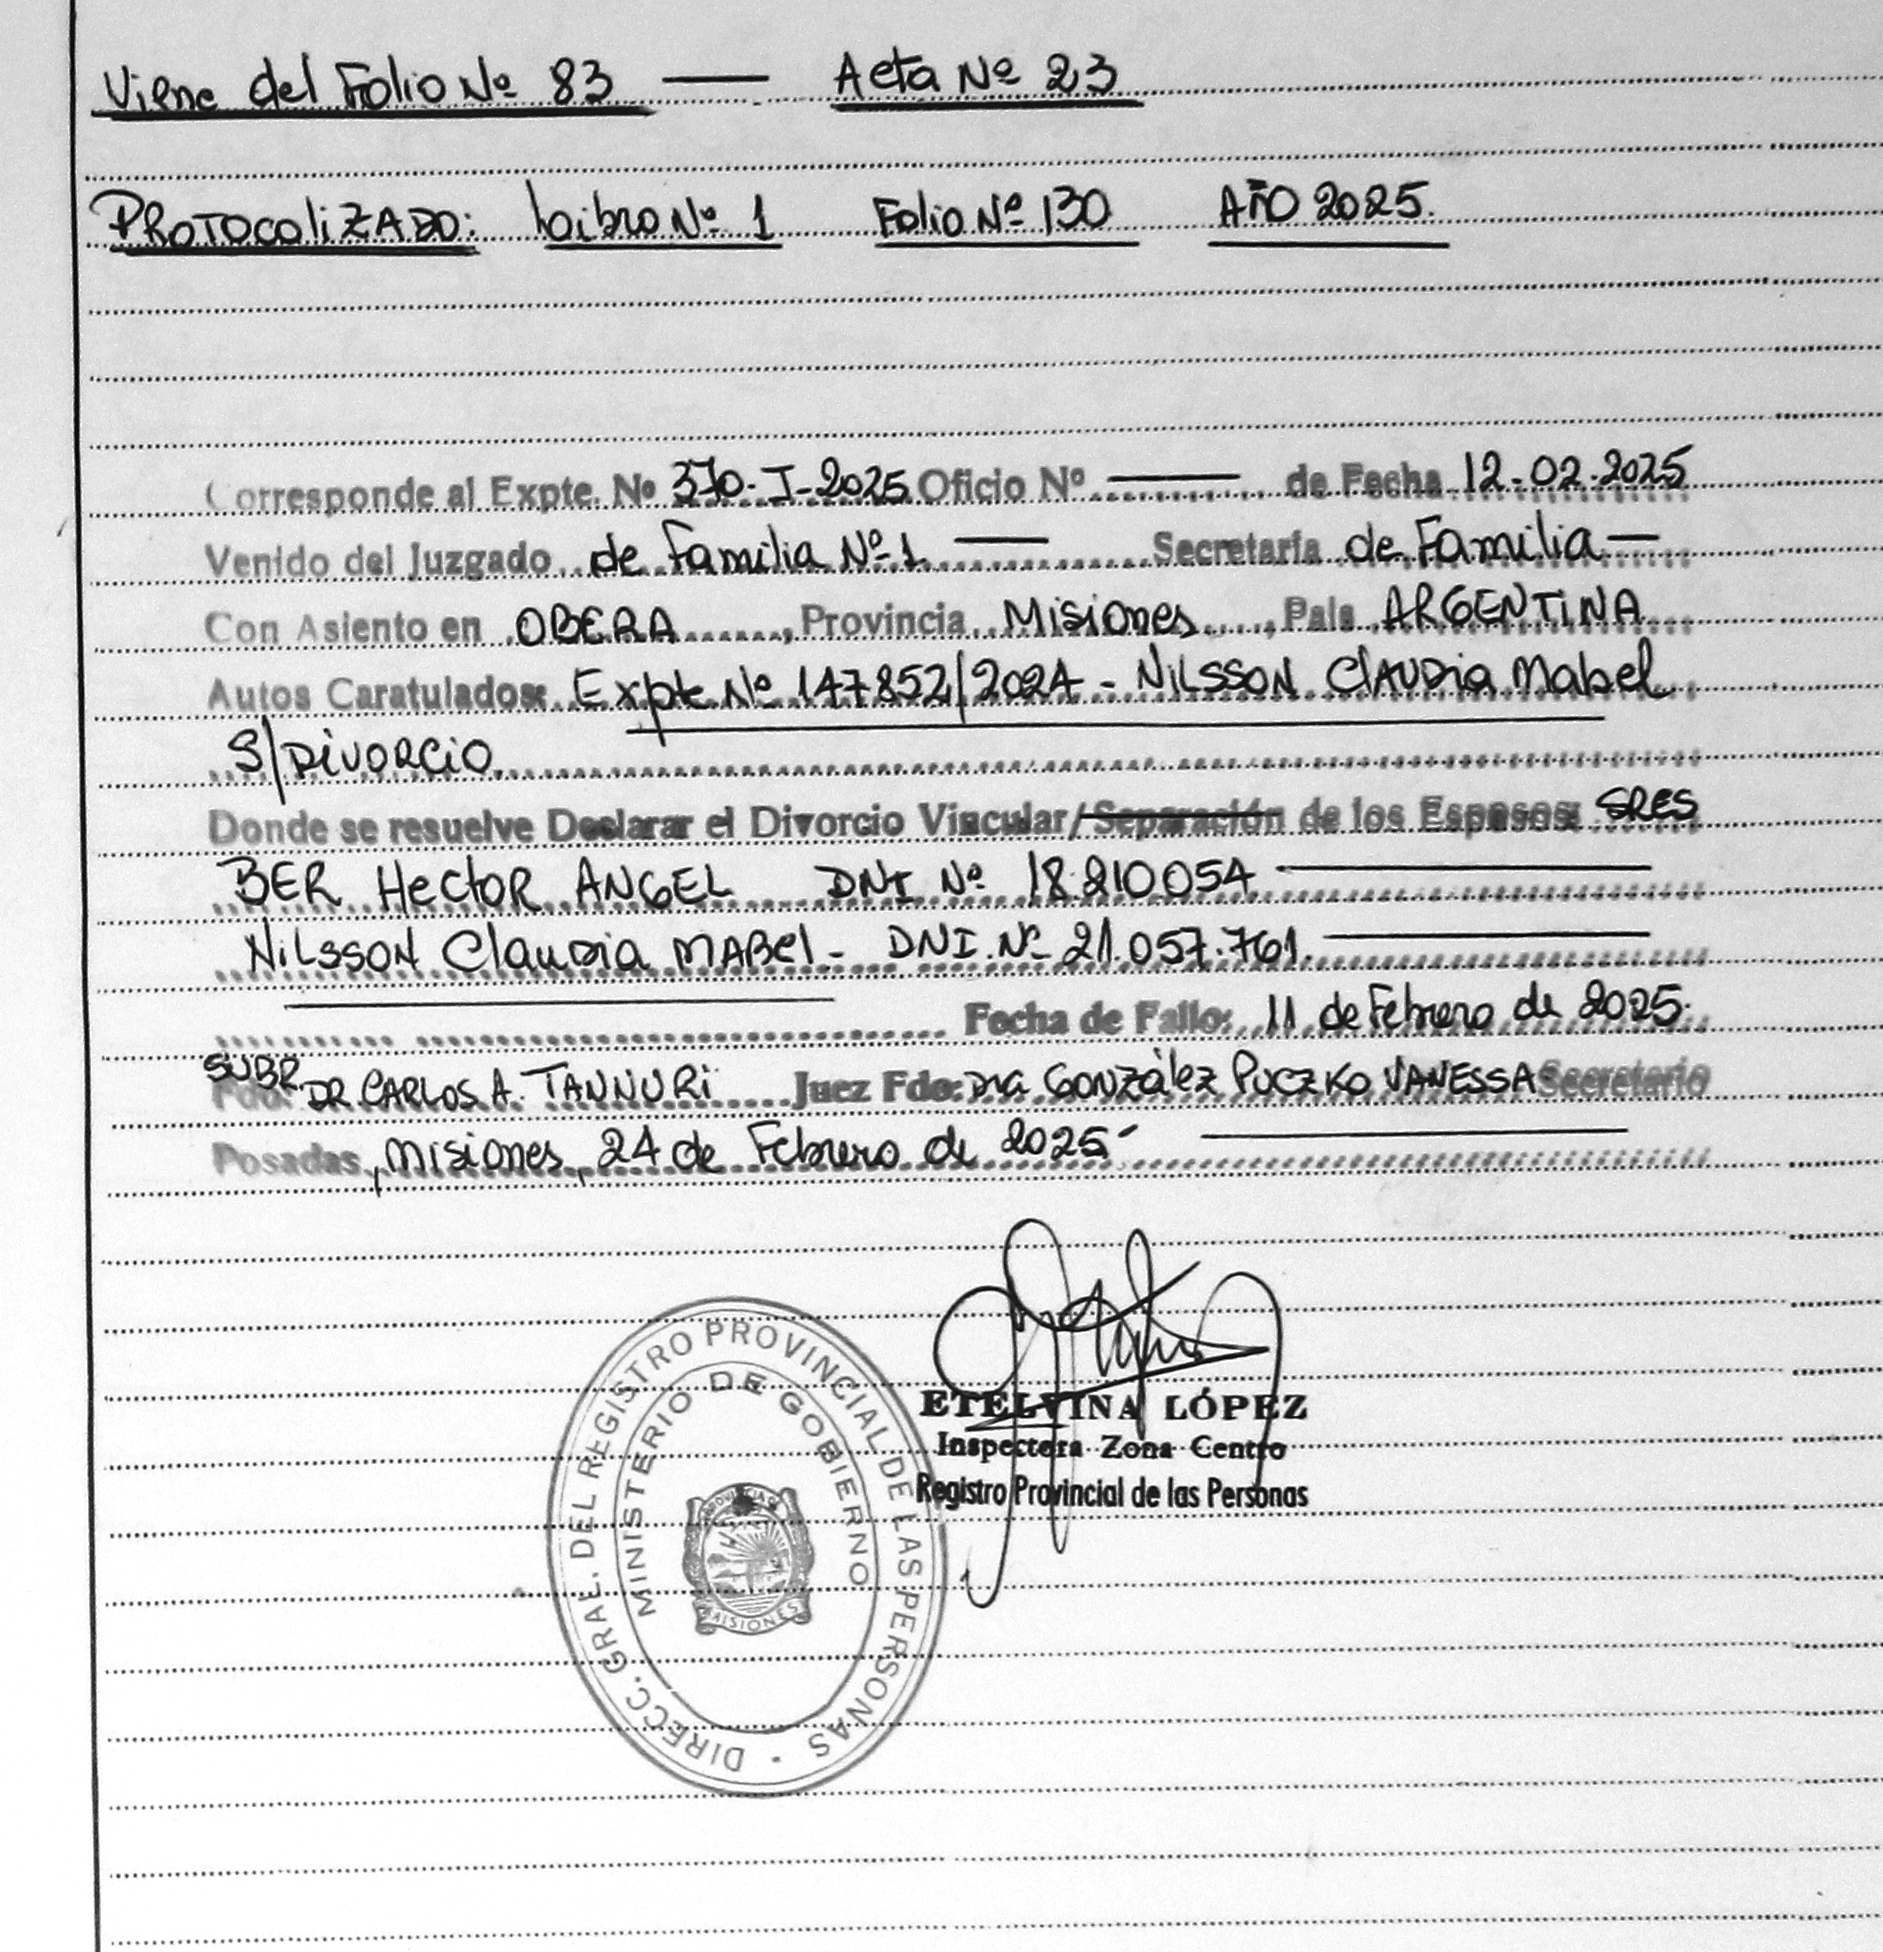 Viene del Folio Nº 83 — Acta Nº 23
PROTOCOLIZADO: Libro Nº 1 Folio Nº 130 AÑO 2025.
Corresponde al Expte. Nº 370-I-2025 Oficio Nº — de Fecha 12-02-2025
Venido del Juzgado de Familia Nº 1 — Secretaría de Familia —
Con Asiento en OBERA, Provincia Misiones, País ARGENTINA
Autos Caratulados: Expte Nº 147852/2024 - NILSSON CLAUDIA Mabel
S/DIVORCIO
Donde se resuelve Declarar el Divorcio Vincular/Separación de los Esposos: SRES
BER HECTOR ANGEL DNI Nº 18.210.054 —
NILSSON Claudia MABEL - DNI. Nº 21.057.761. —
Fecha de Fallo: 11 de Febrero de 2025.
SUBR
Fdo: DR CARLOS A. TANNURI Juez Fdo: DRA GONZÁLEZ PUCZKO VANESSA Secretario
Posadas, Misiones, 24 de Febrero de 2025 —
ETELVINA LÓPEZ
Inspectora Zona Centro
Registro Provincial de las Personas
DIRECC. GRAL. DEL REGISTRO PROVINCIAL DE LAS PERSONAS
MINISTERIO DE GOBIERNO
PROVINCIA DE
MISIONES